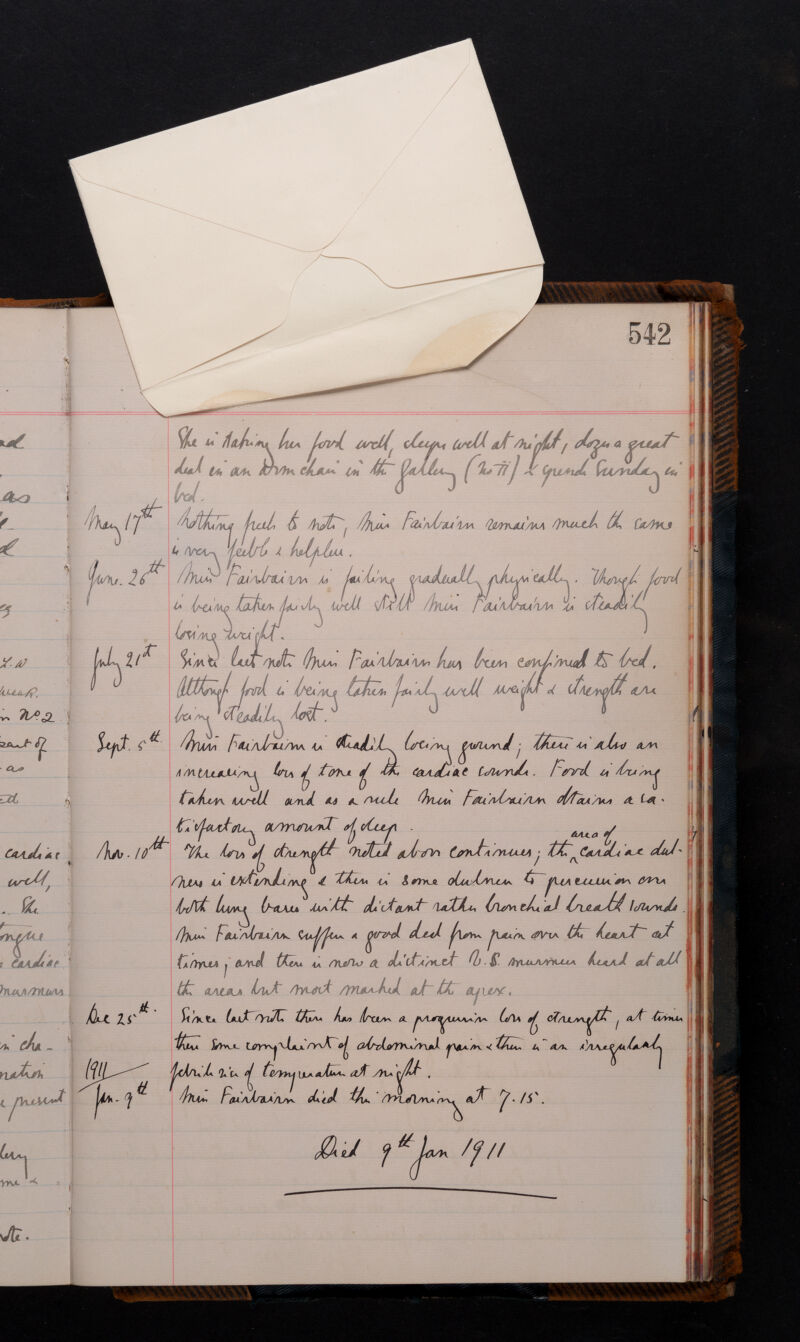 542
She is taking her food well, sleeps well at night, dozes a great
deal in an arm chair in the Gallery (No II) & spends Sunday in
bed.
May 17th Nothing fresh to note, Miss Fairbairn remains much the same
is very feeble & helpless.
June. 26th Miss Fairbairn is failing gradually physically. Though food
is being taken fairly well still Miss Fairbairn is steadily
losing weight.
July 21st Since last note Miss Fairbairn has been confined to bed.
Although food is being taken fairly well weight & strength are
being steadily lost.
Sept. 5th Miss Fairbairn is steadily losing ground; there is also an
increasing loss of tone of the cardiac sounds. Food is being
taken well and as a rule Miss Fairbairn obtains a sa-
tisfactory amount of sleep.
Nov. 10th The loss of strength noted above continues; the area of cardiac dul-
ness is extending & there is some dulness to percussion over
both lung bases with distant rather bronchial breath sounds.
Miss Fairbairn suffers a good deal from pain over the heart at
times; and there is now a distinct V.S. murmur heard at all
the areas but most marked at the apex.
Dec 25th. Since last note there has been a progressive loss of strength, at times
there some complaint of abdominal pain & there is an irregularly
1911 febrile rise of temperature at night.
Jan. 9th Miss Fairbairn died this morning at 7.15.
Died 9th Jan 1911
as
No 2
part of
as
cardiac
well,
. She
tongue
cardiac
murmurs
present
me &
note.